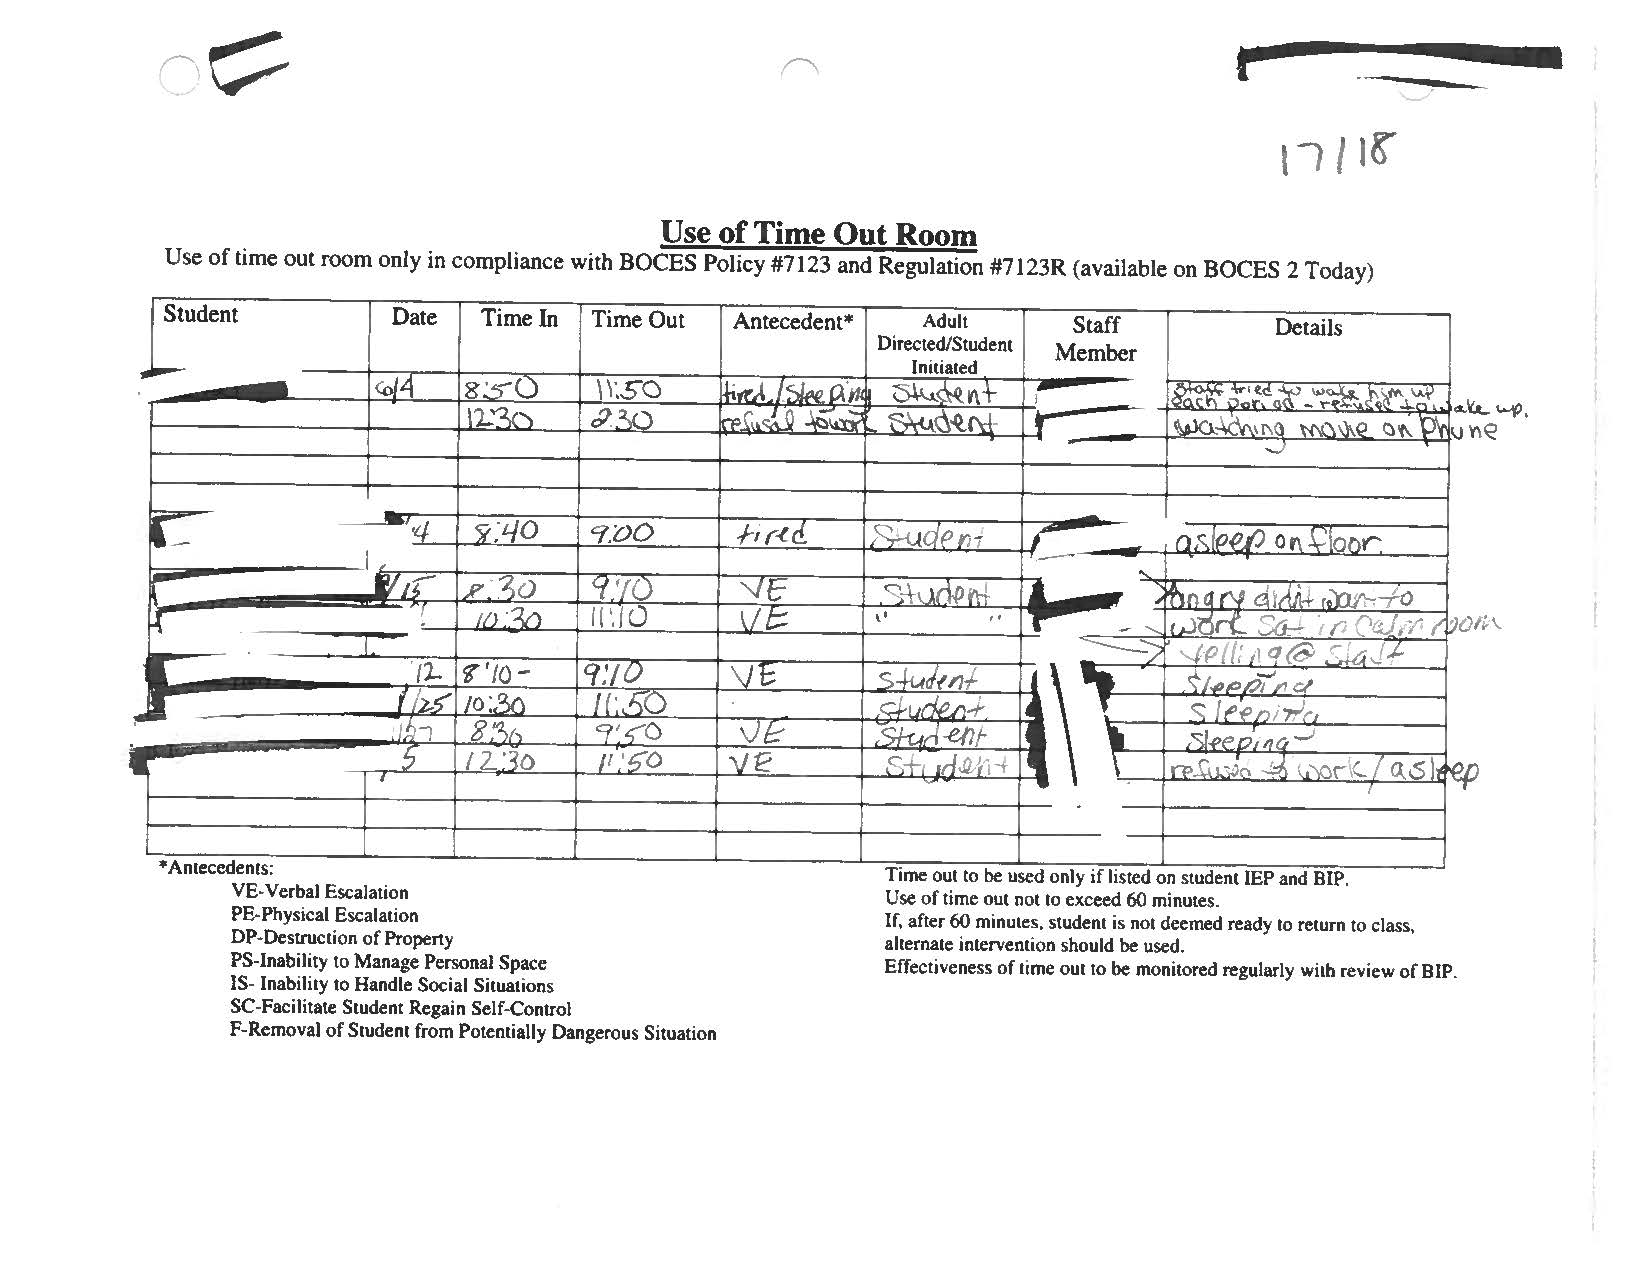 17/18
Use of Time Out Room
Use of time out room only in compliance with BOCES Policy #7123 and Regulation #7123R (available on BOCES 2 Today)
Student Date Time In Time Out Antecedent* Adult Directed/Student Initiated Staff Member Details
6/4 8:50 11:50 tired/Sleeping Student Staff tried to wake him up each period - refused to wake up.
12:30 2:30 refusal to work Student watching movie on Phone
4 8:40 9:00 tired Student asleep on floor.
/15 8:30 9:10 VE Student Angry didn't want to
10:30 11:10 VE " " work sat in calm room
yelling @ staff
12 8:10- 9:10 VE Student Sleeping
/25 10:30 11:50 Student Sleeping
/27 8:30 9:50 VE Student Sleeping
5 12:30 11:50 VE Student refused to work/asleep
*Antecedents:
VE-Verbal Escalation
PE-Physical Escalation
DP-Destruction of Property
PS-Inability to Manage Personal Space
IS- Inability to Handle Social Situations
SC-Facilitate Student Regain Self-Control
F-Removal of Student from Potentially Dangerous Situation
Time out to be used only if listed on student IEP and BIP.
Use of time out not to exceed 60 minutes.
If, after 60 minutes, student is not deemed ready to return to class,
alternate intervention should be used.
Effectiveness of time out to be monitored regularly with review of BIP.